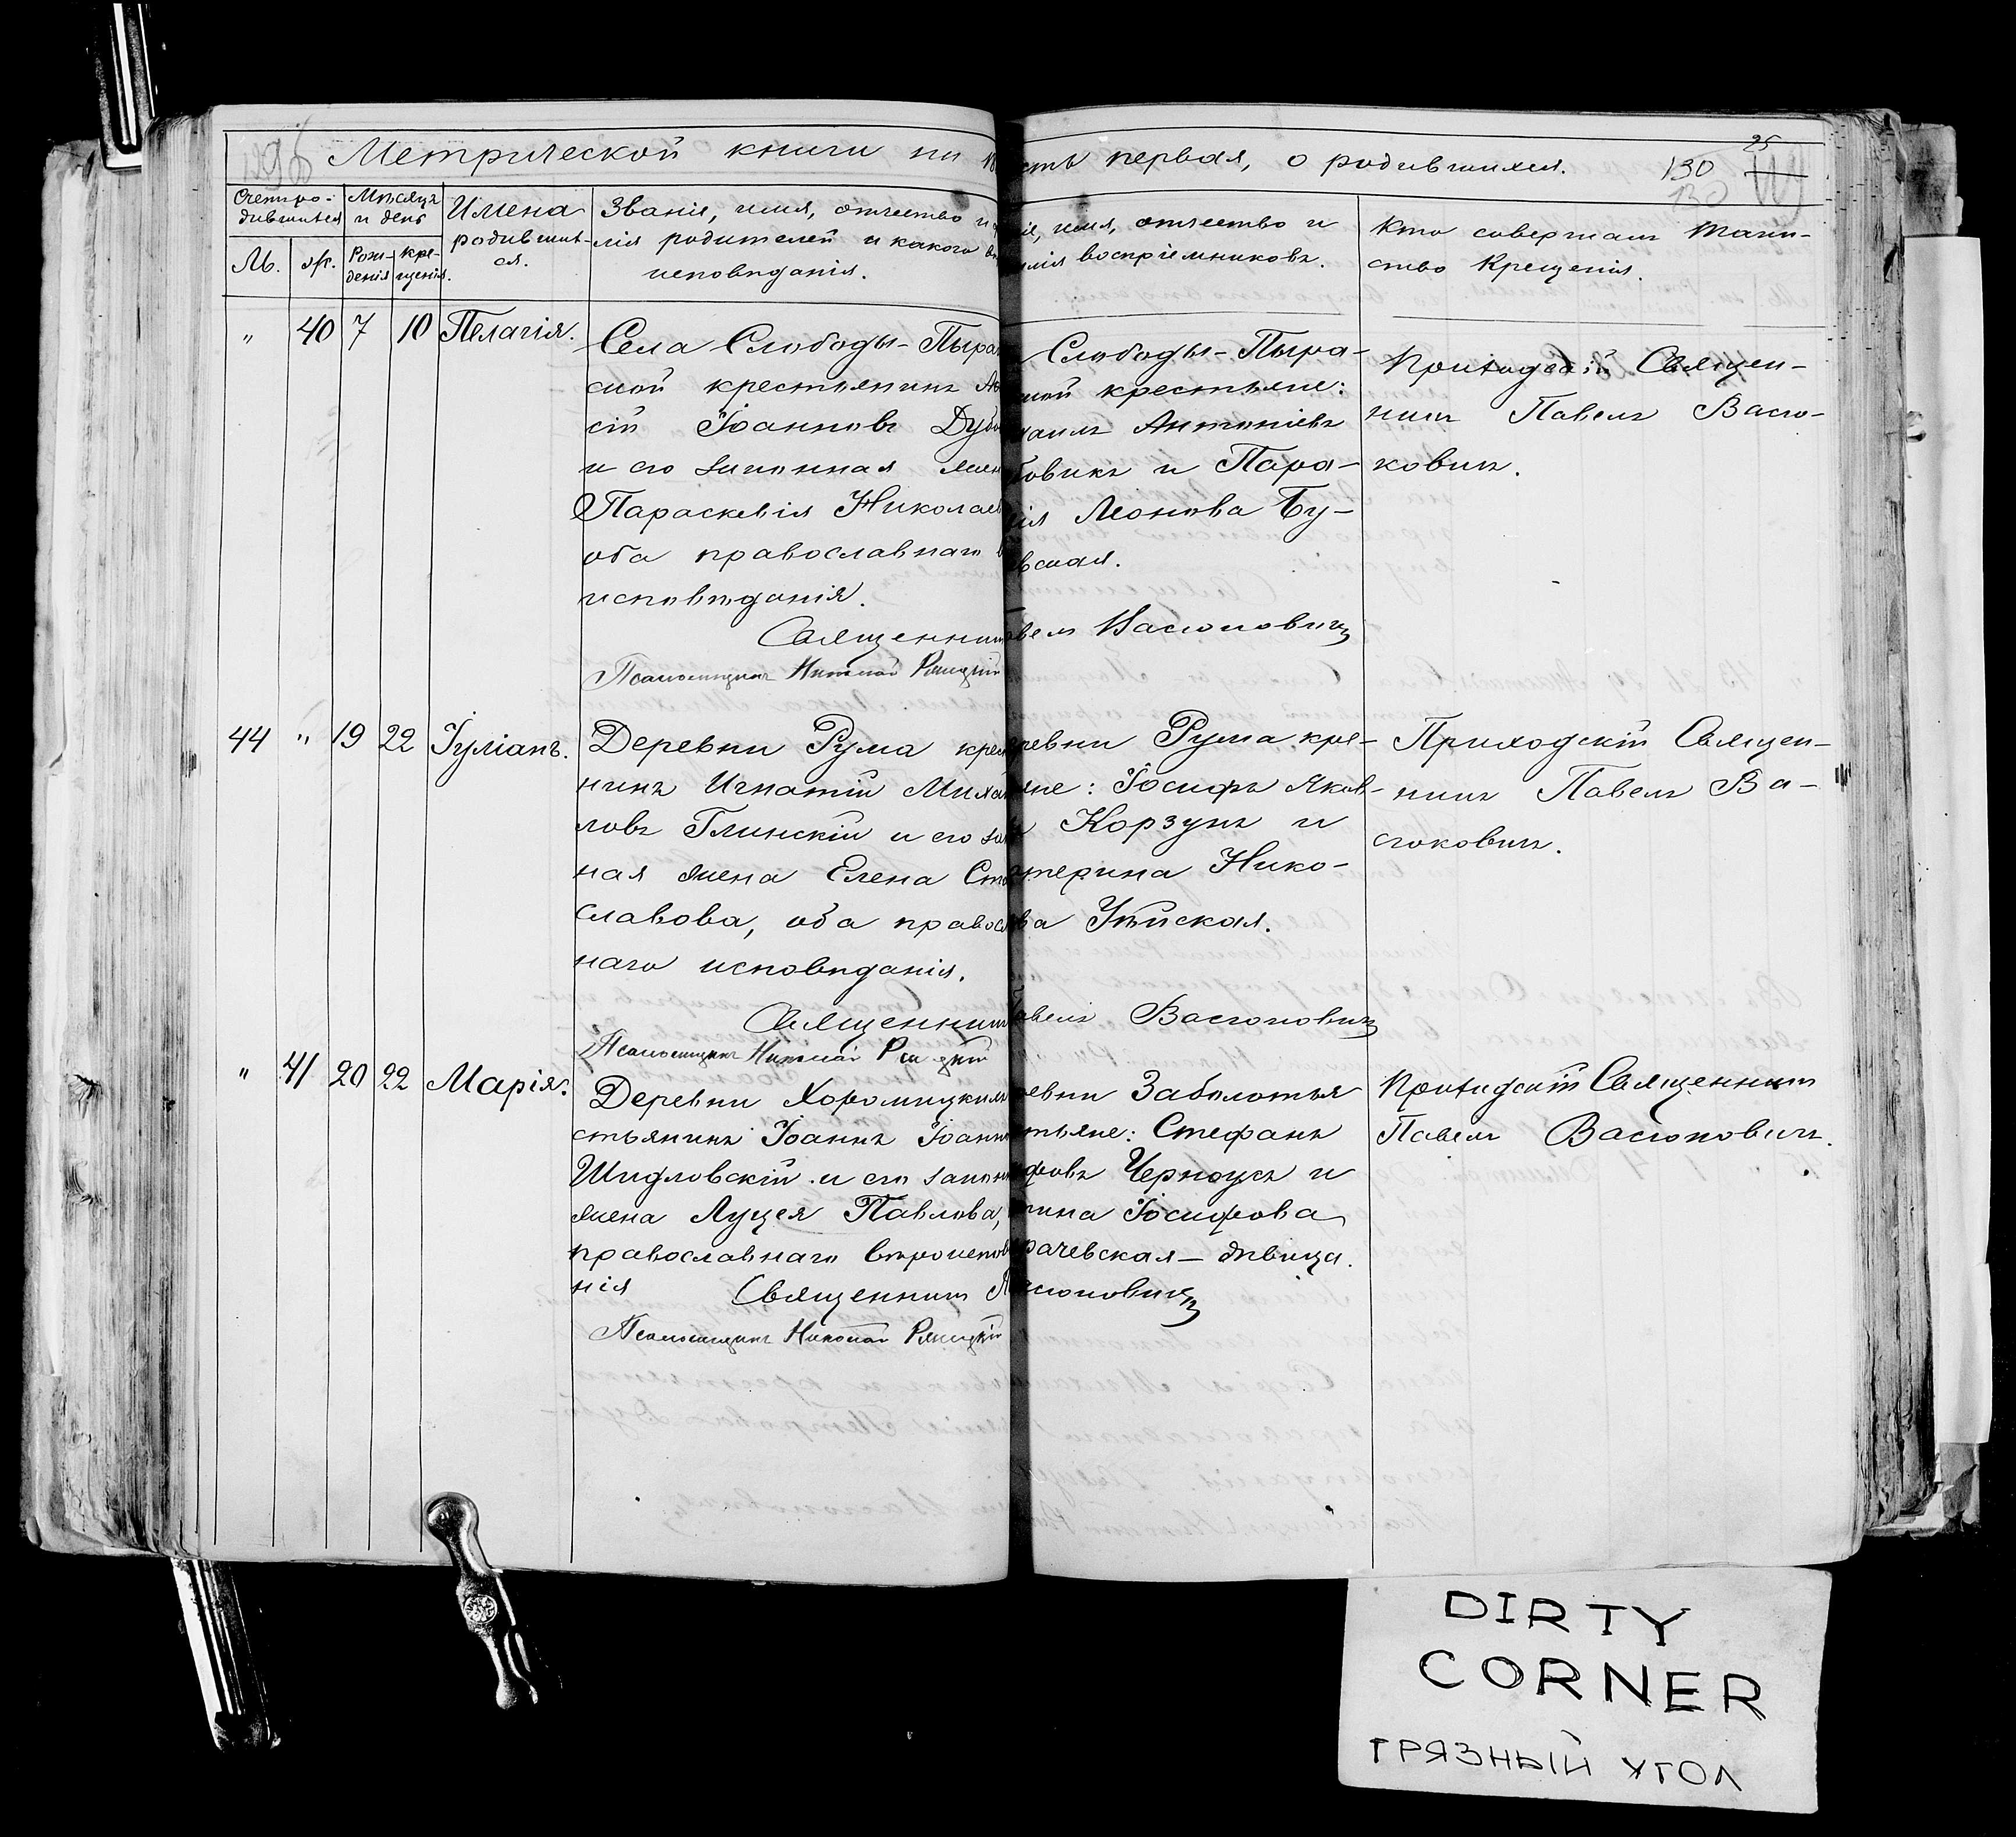 Метрической книги на
сть первая, о родившихся.
130
25
130
Счетъ ро-
дившихся
Мѣсяцъ
и день
Имена
родивших-
ся.
Званія, имя, отчество и
лія родителей и какого
исповѣданія.
М.
Ж.
Рож-
денія
кре-
щенія.
ие, имя, отчество и
милія воспріемниковъ.
Кто совершалъ таин-
ство Крещенія.
" 40 7 10 Пелагія.
Села Слободы-Пыра
ской крестьянинъ
сій Іоанновъ Дубо
и его законная жен
Параскевія Николаев
оба православнаго
исповѣданія.
Священник
Псаломщикъ Николай
Слободы-Пыра-
ской крестьяне:
хаилъ Антоніевъ
бовикъ и Пара-
ія Леонова Бу-
вская.
авелъ Васюковичъ
Приходскій Священ-
никъ Павелъ Васю-
ковичъ.
44 " 19 22 Іуліанъ.
Деревни Рума крест
нинъ Игнатій Михаи
ловъ Глинскій и его зак
ная жена Елена Ста
славова, оба правосл
наго исповѣданія.
Священник
Псаломщикъ Николай
ревни Рума кре-
яне: Іосифъ Яков-
ъ Корзунъ и
атерина Нико-
ва Уѣйская.
авелъ Васюковичъ
Приходскій Священ-
никъ Павелъ Ва-
сюковичъ.
" 41 20 22 Марія.
Деревни Хоромицкихъ
стьянинъ Іоаннъ Іоанн
Шидловскій и его законн
жена Луцея Павлова,
православнаго вѣроисповѣ
нія Священникъ П
Псаломщикъ Николай
ревни Заболотья
стьяне: Стефанъ
ифовъ Черноусъ и
тина Іосифова
рачевская – дѣвица.
асюковичъ
Приходскій Священникъ
Павелъ Васюковичъ.
DIRTY
CORNER
ГРЯЗНЫЙ УГОЛ